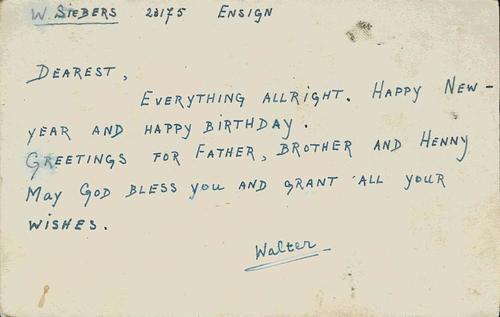 W. SIEBERS 23175 ENSIGN
DEAREST,
EVERYTHING ALLRIGHT. HAPPY NEW-
YEAR AND HAPPY BIRTHDAY.
GREETINGS FOR FATHER, BROTHER AND HENNY
MAY GOD BLESS YOU AND GRANT ALL YOUR
WISHES.
Walter